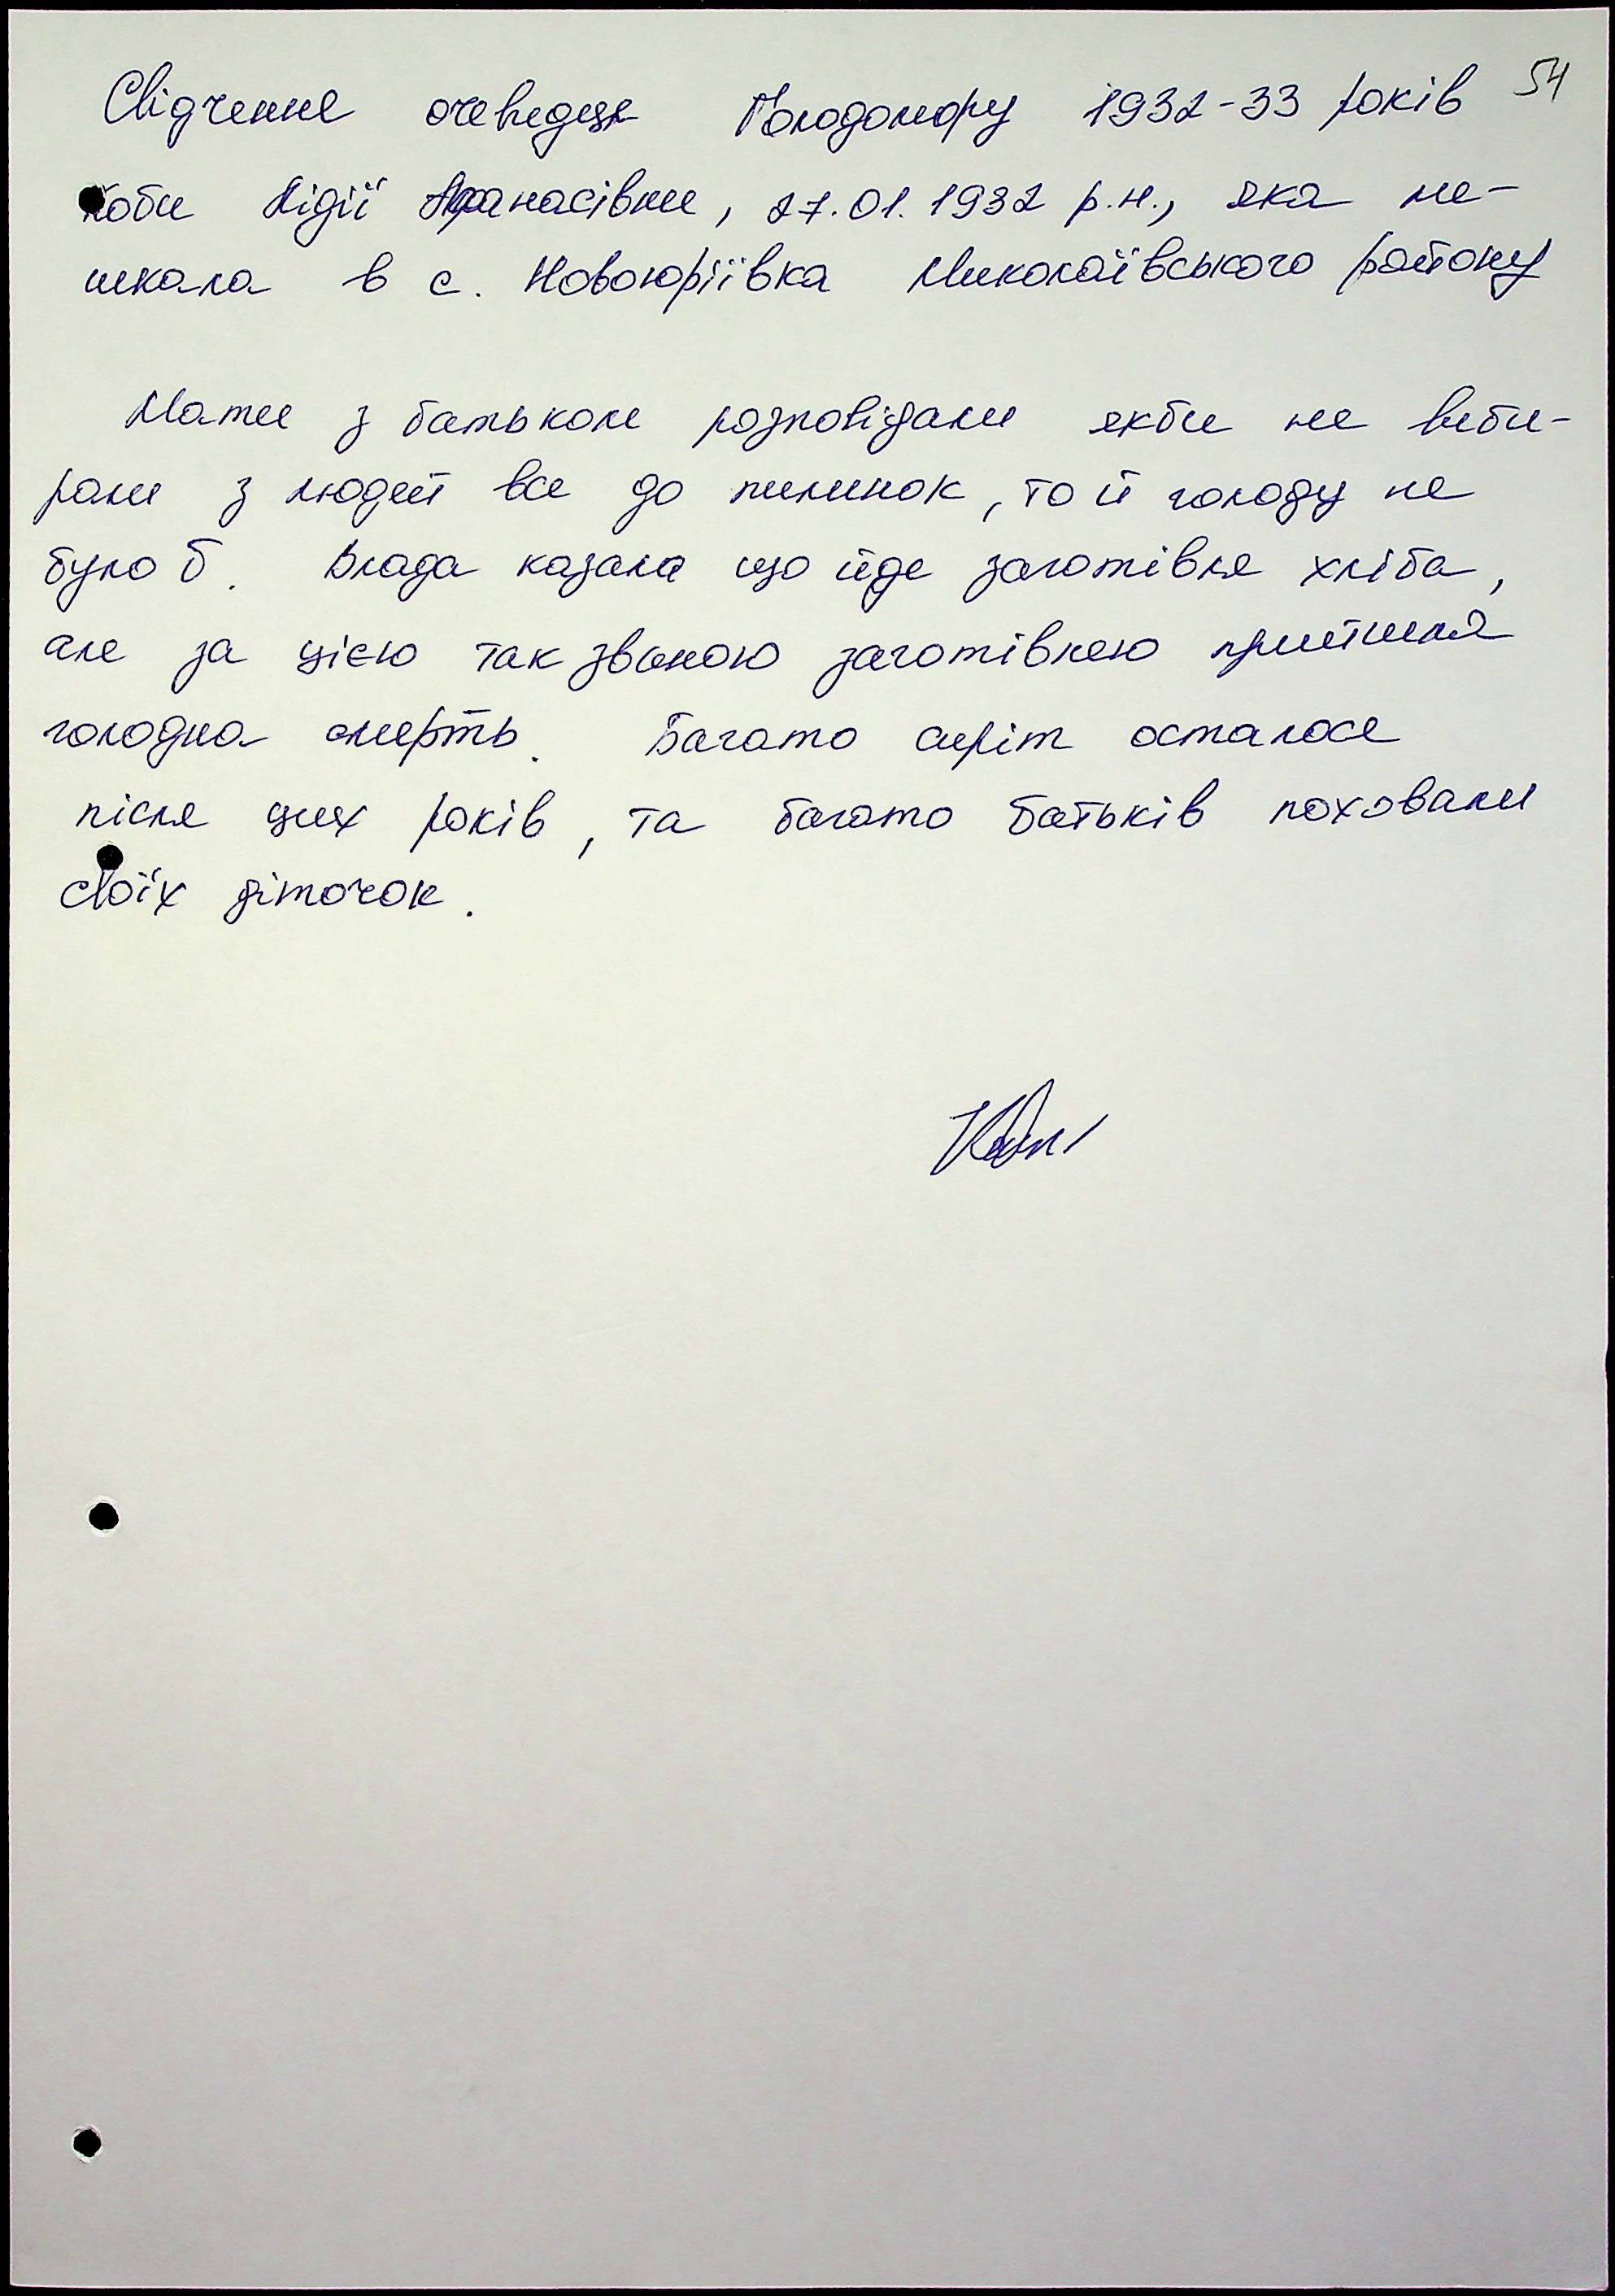 54
Свідчення очевидця Голодомору 1932-33 років
Коби Лідії Афанасівни, 27.01.1932 р.н., яка ме-
шкала в с. Новоюріївка Миколаївського району
Мати з батьком розповідали якби не виби-
рали з людей все до пилинок, то й голоду не
було б. Влада казала що йде заготівля хліба,
але за цією так званою заготівлею прийшла
голодна смерть. Багато сиріт осталося
після цих років, та багато батьків поховали
своїх діточок.